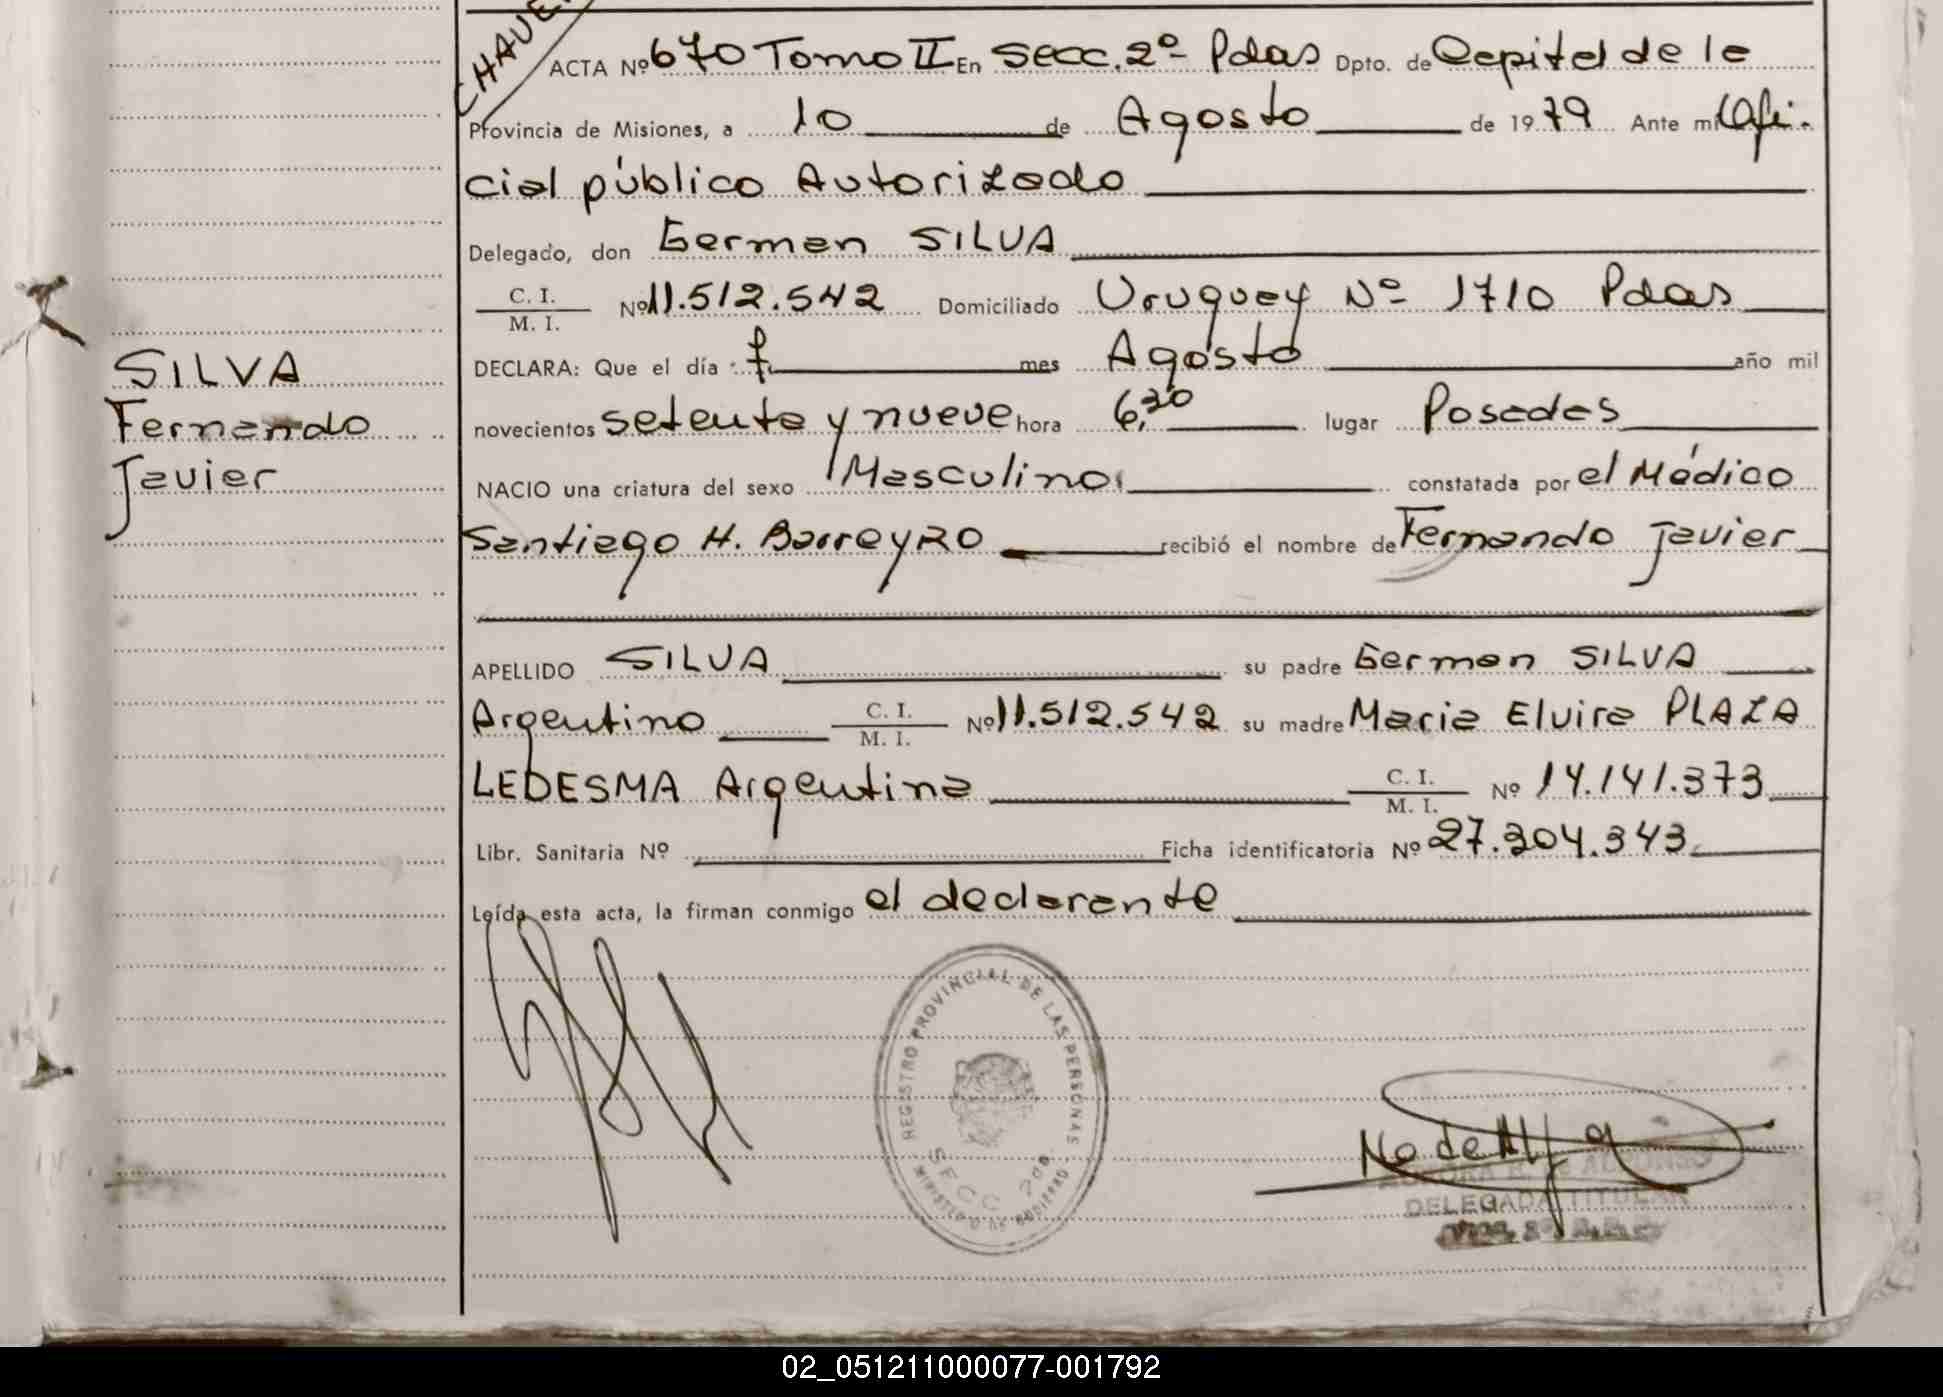 SILVA
Fernando
Javier
ACTA Nº 670 Tomo II En Secc. 2º Pdas Dpto. de Capital de la
Provincia de Misiones, a 10 de Agosto de 1979 Ante mi Ofi-
cial público Autorizado
Delegado, don German SILVA
C. I.
M. I. Nº 11.512.542 Domiciliado Uruguay Nº 1710 Pdas
DECLARA: Que el día 7 mes Agosto año mil
novecientos setenta y nueve hora 6,30 lugar Posadas
NACIO una criatura del sexo Masculino constatada por el Médico
Santiago H. Barreyro recibió el nombre de Fernando Javier
APELLIDO SILVA su padre German SILVA
Argentino C. I.
M. I. Nº 11.512.542 su madre Maria Elvira PLAZA
LEDESMA Argentina C. I.
M. I. Nº 14.141.373
Libr. Sanitaria Nº Ficha identificatoria Nº 27.304.343
Leída esta acta, la firman conmigo el declarante
REGISTRO PROVINCIAL DE LAS PERSONAS
SECC 2da
MINISTERIO DE GOBIERNO
DELEGADA TITULAR
02_051211000077-001792